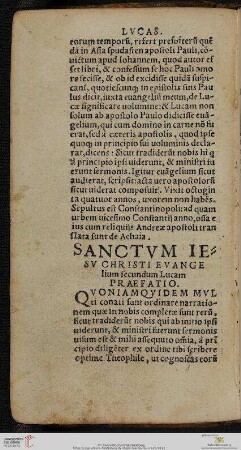 LVCAS.
eorum temporū, refert presbiterū quē
dā in Asia spudasten apostoli Pauli, cō-
uictum apud Iohannem, quod autor es
set libri, & confessum se hoc Pauli amo
re fecisse, & ob id excidisse quidā suspi
cant, quotiescunq; in epistolis suis Pau
lus dicit, iuxta euangeliū meum, de Lu-
cæ significare uolumine: & Lucam non
solum ab apostolo Paulo didicisse euā-
gelium, qui cum domino in carne nō fu
erat, sed à cæteris apostolis, quod ipse
quoq; in principio sui uoluminis decla-
rat, dicens: Sicut tradiderūt nobis hi q
à principio ipsi uiderunt, & ministri fu
erunt sermonis. Igitur euāgelium sicut
audierat, scripsit: acta uero apostolorū
sicut uiderat composuit. Vixit octogin
ta quatuor annos, uxorem non habēs.
Sepultus est Constantinopoli: ad quam
urbem uicesimo Constantij anno, ossa e
ius cum reliquijs Andreæ apostoli tran
slata sunt de Achaia.
SANCTVM IE-
SV CHRISTI EVANGE
lium secundum Lucam
PRAEFATIO.
QVONIAMQVIDEM MVL
ti conati sunt ordinare narratio-
nem quæ in nobis completæ sunt rerū,
sicut tradiderūt nobis qui ab initio ipsi
uiderunt, & ministri fuerunt sermonis
uisum est & mihi assequuto omīa, à prī
cipio diligēter ex ordine tibi scribere
optime Theophile, ut cognoscas eorū